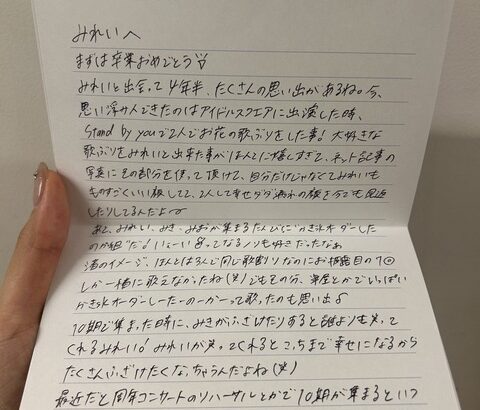 みれいへ
まずは卒業おめでとう
みれいと出会って4年半、たくさんの思い出があるね。今、
思い浮かんできたのはアイドルスクエアに出演した時、
Stand by youで2人でお花の歌ぶりをした事! 大好きな
歌ぶりをみれいと出来た事がほんとに嬉しすぎて、ネット記事の
写真にその部分を使って頂けて、自分だけじゃなくてみれいも
ものすごくいい顔してて、2人して幸せダダ漏れの顔を今でも見返
したりしてるんだよ〜
あと、みれい、みき、みおが集まるたんびにかき氷オーダーした
のが
なるノリも好きだったなあ
渚のイメージ、ほんとは3人で同じ歌割りなのにお披露目の1回
しか一緒に歌えなかったね(笑)でもその分、楽屋とかでいっぱい
かき氷オーダーしたーのーかーって歌ったのも思い出
10期で集まった時に、みきがふざけたりすると誰よりも笑って
くれるみれい! みれいが笑ってくれるとこっちまで幸せになるから
たくさんふざけたくなっちゃうんだよね(笑)
最近だと周年コンサートのリハーサルとかで10期が集まるといつ